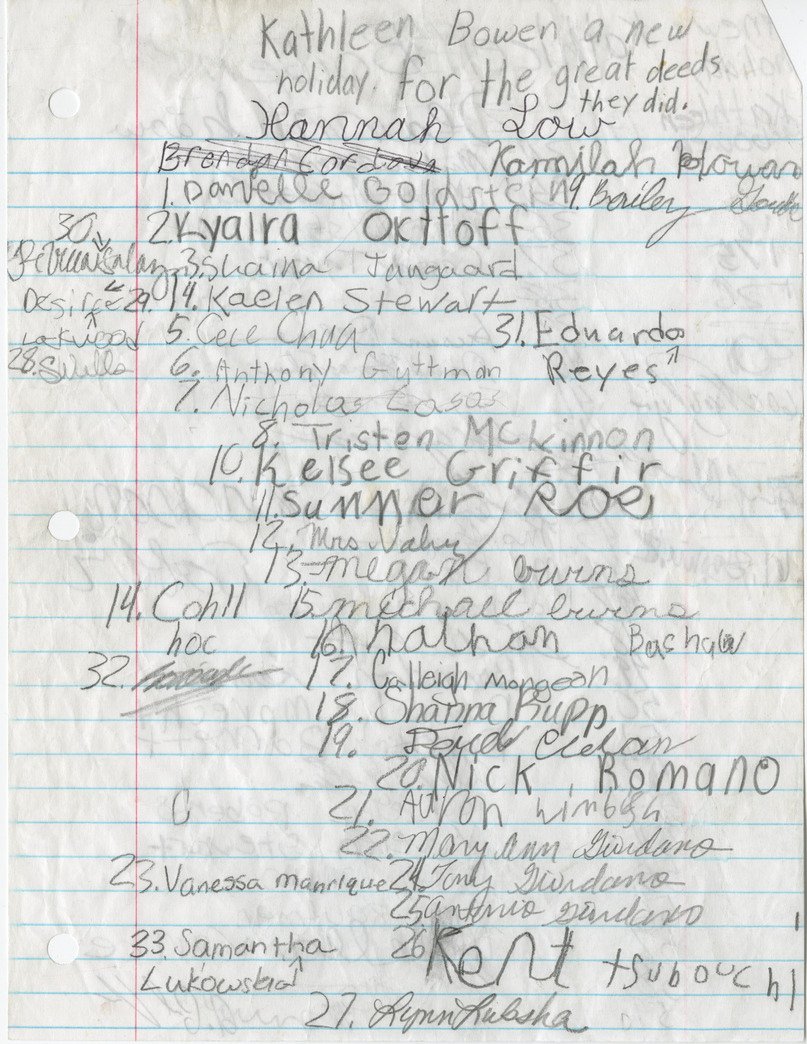 Kathleen Bowen a new
holiday. for the great deeds
they did.
Hannah Low
Brendan Cordova Kamilah
1. Danielle Goldstein 9. Bailey
30. 2. Kyalra Okttoff
3. Shaina Jangaard
Desiree 29. 14. Kaelen Stewart
Lockwood 5. Cece Chua 31. Eduardo
28. 6. Anthony Guttman Reyes
7. Nicholas Casas
8. Tristen Mckinnon
10. Kelsee Griffir
11. Summer Roe
12. Mrs.
13. megan burns
14. Cohll 15. michael burns
hoc 16. nathan Bashaw
32. 17. Calleigh Mongeon
18. Shanna Rupp
19.
20. Nick Romano
21.
22. Mary Ann Giordano
23. Vanessa manrique 24. Tony Giordano
25 antonio Giordano
33. Samantha 26 Kent tsubouchi
Lukowski
27. Lynn Lubsha